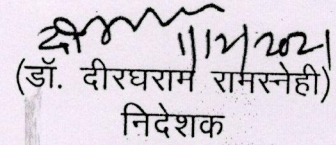 1/12/2021
(डॉ. दीरघराम रामस्नेही)
निदेशक